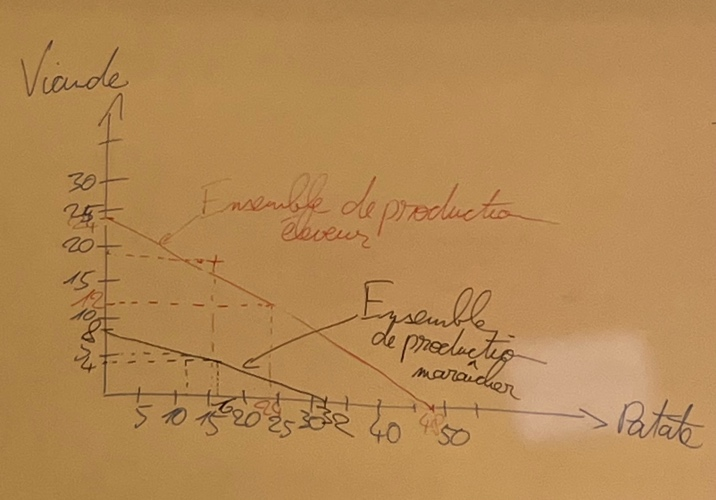 Viande
30
25
24
20
15
12
10
8
5
4
Ensemble de production
éleveur
Ensemble
de production
maraîcher
5 10 15 16 20 24 25 30 32 40 48 50
Patate